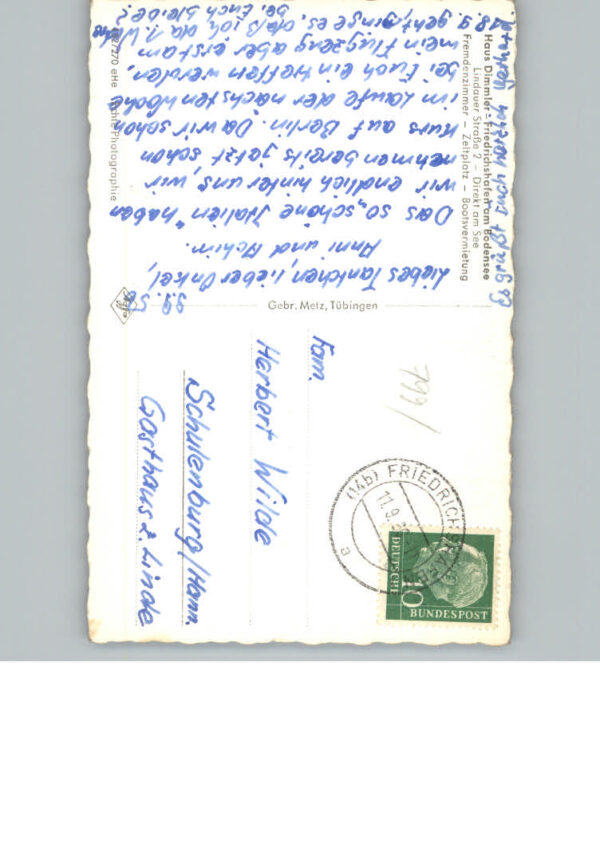 Haus Dimmler - Friedrichshafen am Bodensee
Lindauer Straße 2 – Direkt am See
Fremdenzimmer – Zeltplatz – Bootsvermietung
Liebes Tantchen, lieber Onkel,
Anni und Achim.
Das so „schöne Italien" haben
wir endlich hinter uns, wir
nehmen bereits jetzt schon
Kurs auf Berlin. Da wir schon
im Laufe der nächsten Woche
bei Euch eintreffen werden,
mein Flugzeug aber erst am
18.9. geht, ginge es, daß ich da 1 Woche
bei Euch bleibe?
Es grüßt Euch herzlich
eHe Echte Photographie
Gebr. Metz, Tübingen
Fam.
Herbert Wilde
Schulenburg/Hann.
Gasthaus z. Linde
799/
(14b) FRIEDRICHSHAFEN
11.9.
a
10
DEUTSCHE
BUNDESPOST